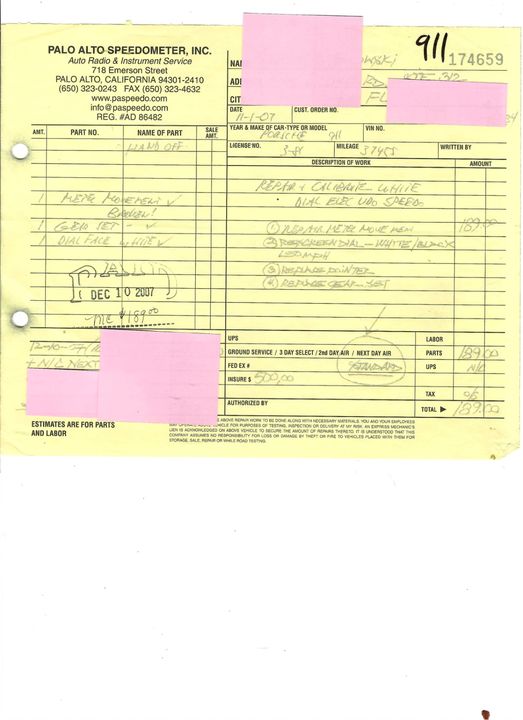 911
174659
PALO ALTO SPEEDOMETER, INC.
Auto Radio & Instrument Service
718 Emerson Street
PALO ALTO, CALIFORNIA 94301-2410
(650) 323-0243 FAX (650) 323-4632
www.paspeedo.com
info@paspeedo.com
REG. #AD 86482
WSKI
CIT FL
DATE 11-1-07 CUST. ORDER NO.
YEAR & MAKE OF CAR-TYPE OR MODEL PORSCHE 911 VIN NO.
LICENSE NO. MILEAGE 37455 WRITTEN BY
AMT. PART NO. NAME OF PART SALE AMT.
DESCRIPTION OF WORK AMOUNT
HAND OFF
REPAIR + CALIBRATE WHITE
DIAL ELEC SPEEDO
1 METER MOVEMENT
BROKEN!
1 GEAR SET
1 DIAL FACE WHITE
① REPAIR METER MOVEMENT 189.00
② RESCREEN DIAL - WHITE/BLACK
MPH
③ REPLACE POINTER
④ REPLACE GEAR SET
PAID
DEC 10 2007
MC $189.00
12-10-07
+ N/C NEXT
UPS LABOR
GROUND SERVICE / 3 DAY SELECT / 2nd DAY AIR / NEXT DAY AIR PARTS 189.00
FED EX # STANDARD UPS N/C
INSURE $ 500.00
TAX
AUTHORIZED BY TOTAL ▶ 189.00
ESTIMATES ARE FOR PARTS
AND LABOR
ABOVE REPAIR WORK TO BE DONE ALONG WITH NECESSARY MATERIALS. YOU AND YOUR EMPLOYEES
MAY OPERATE ABOVE VEHICLE FOR PURPOSES OF TESTING, INSPECTION OR DELIVERY AT MY RISK. AN EXPRESS MECHANIC'S
LIEN IS ACKNOWLEDGED ON ABOVE VEHICLE TO SECURE THE AMOUNT OF REPAIRS THERETO. IT IS UNDERSTOOD THAT THIS
COMPANY ASSUMES NO RESPONSIBILITY FOR LOSS OR DAMAGE BY THEFT OR FIRE TO VEHICLES PLACED WITH THEM FOR
STORAGE, SALE, REPAIR OR WHILE ROAD TESTING.